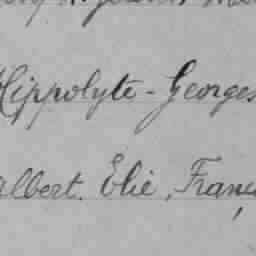 Hippolyte-Georges
Albert, Elie, Franç